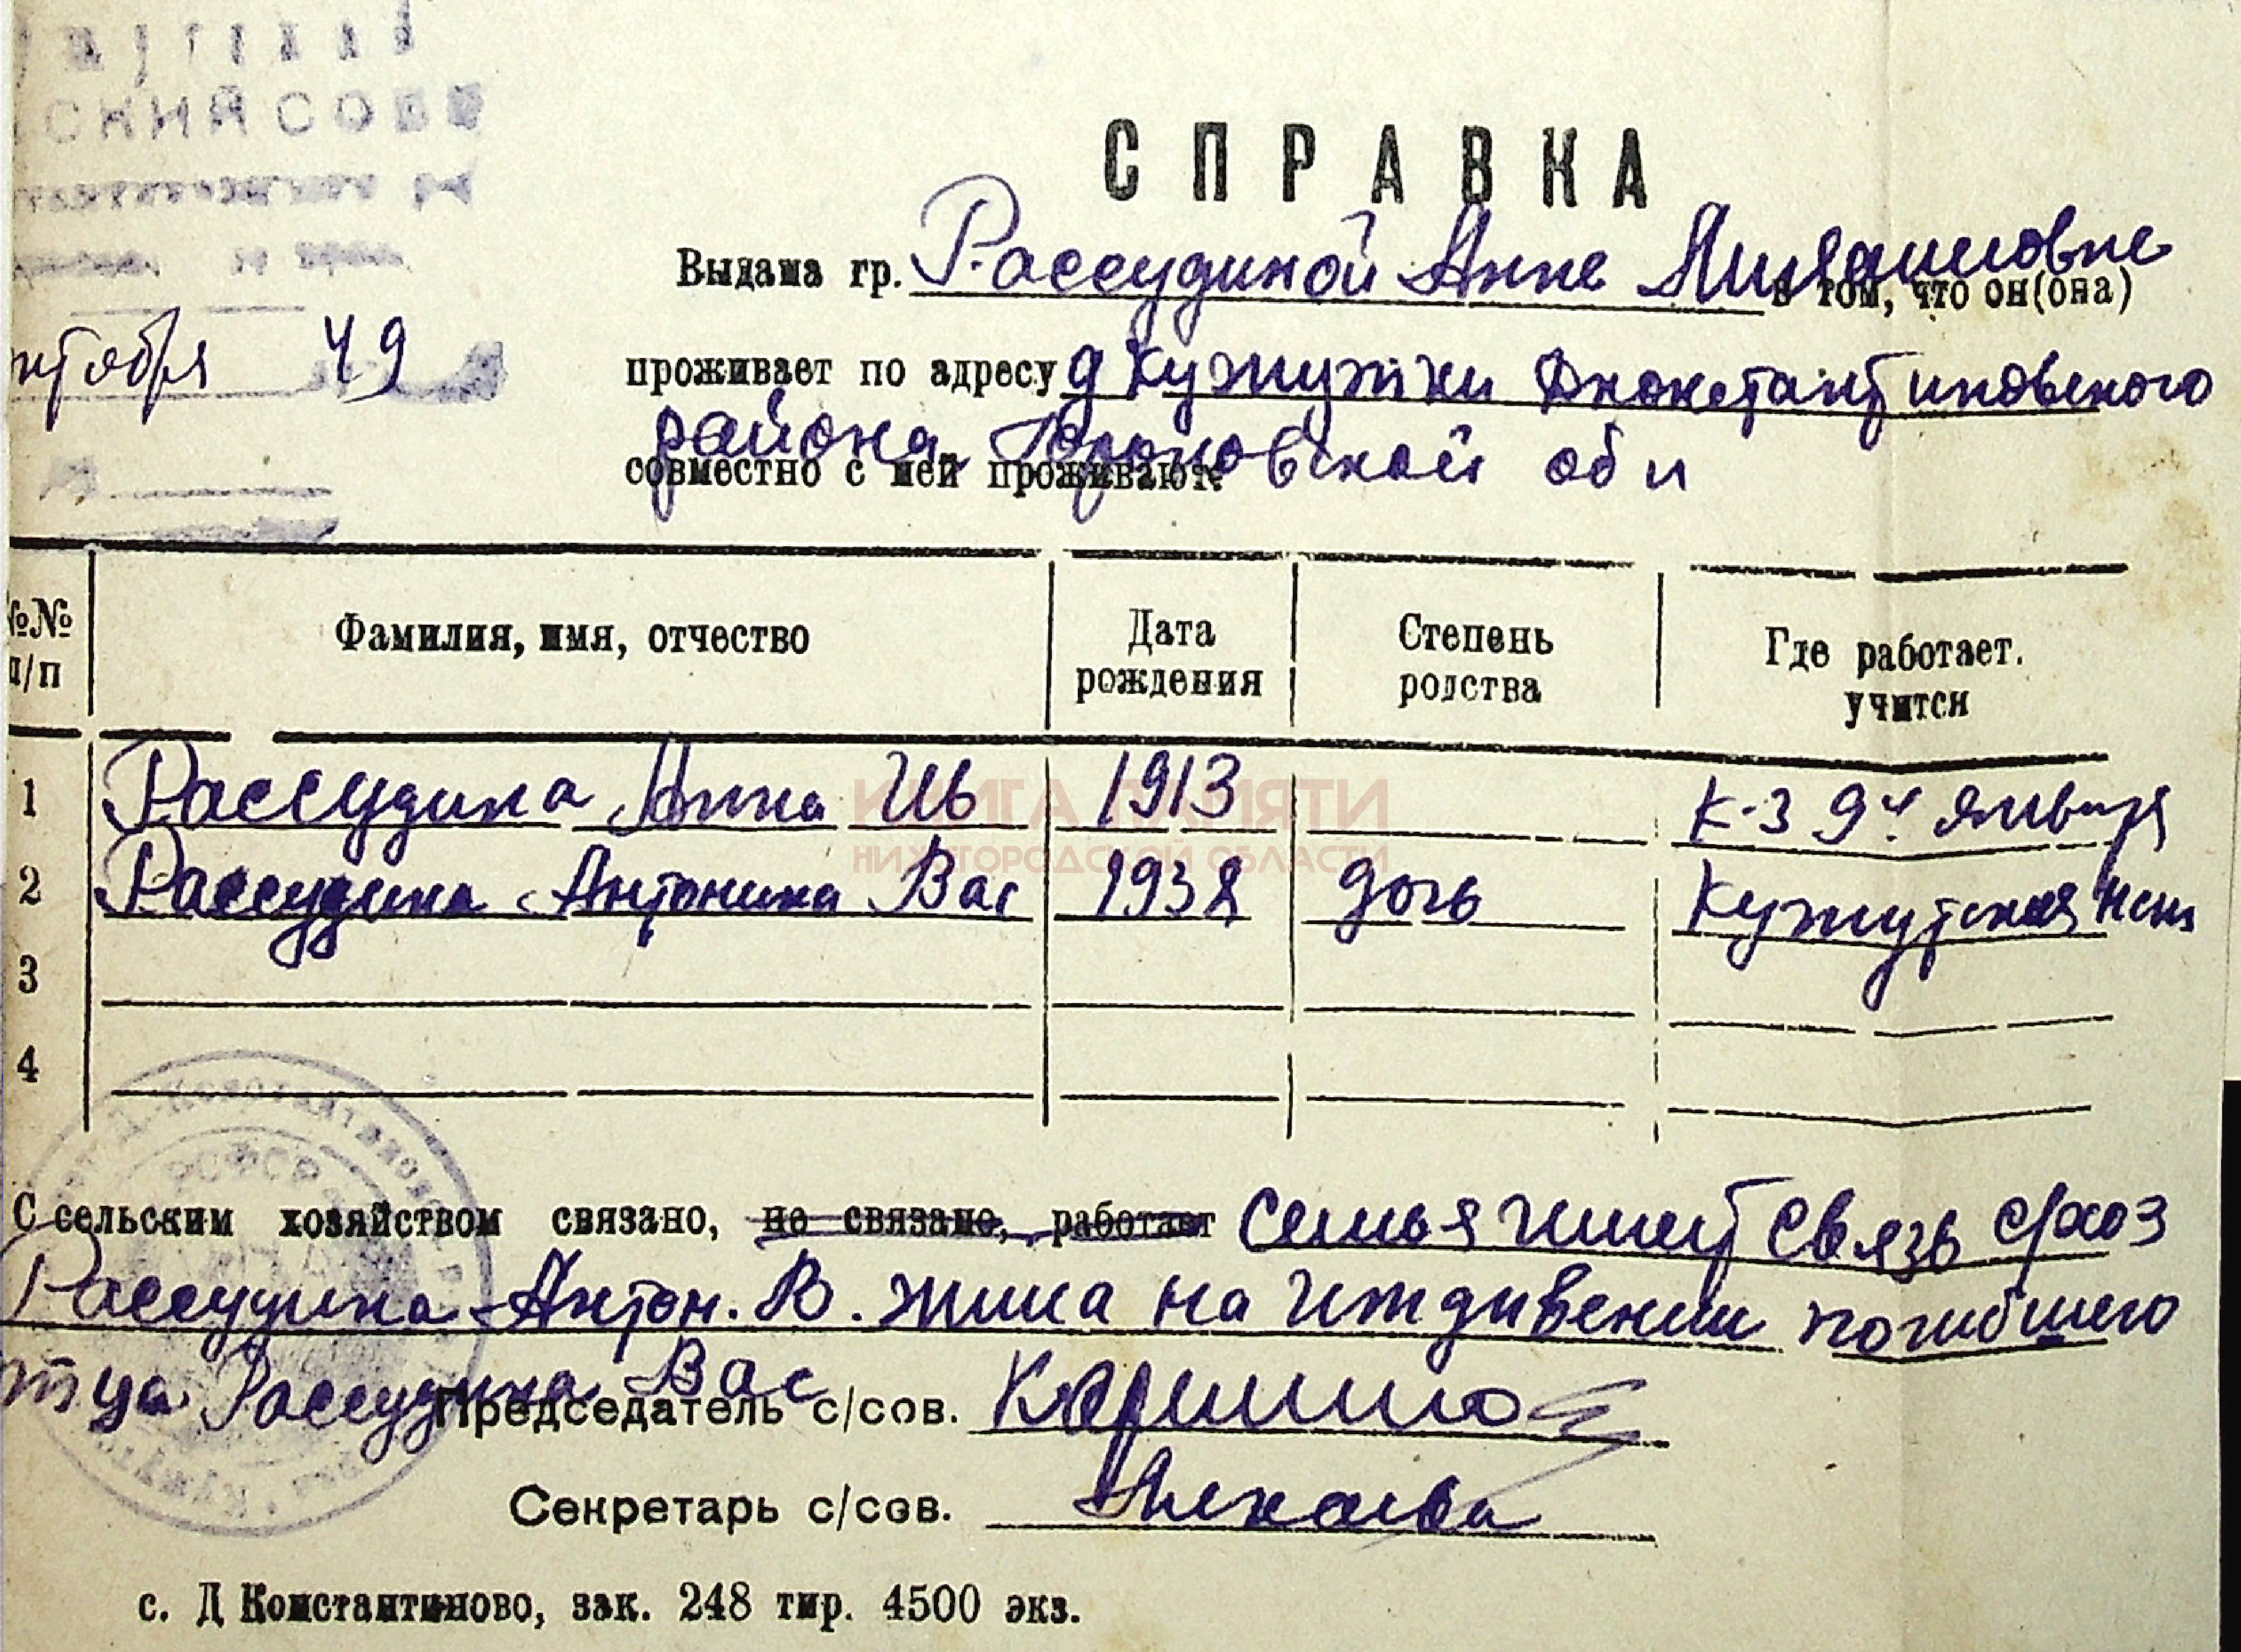 СКИЙ СОВЕ
СПРАВКА
Выдана гр. Рассудиной Анне
в том, что он(она)
нтября 49
проживает по адресу д Кужутки Дконстантиновского
района Горьковской обл
совместно с ней проживают:
№№ п/п Фамилия, имя, отчество Дата рождения Степень родства Где работает. учится
1 Рассудина Анна Ив 1913 к-з 9е января
2 Рассудина Антонина Вас 1938 дочь Кужутская
3
4
КНИГА ПАМЯТИ
НИЖЕГОРОДСКОЙ ОБЛАСТИ
РСФСР
С сельским хозяйством связано, не связано, работает Семья имеет связь
Рассудина Антон. В. жила на иждивении погибшего
тца Рассудина Вас
Председатель с/сов.
Секретарь с/сов.
с. Д Константиново, зак. 248 тир. 4500 экз.